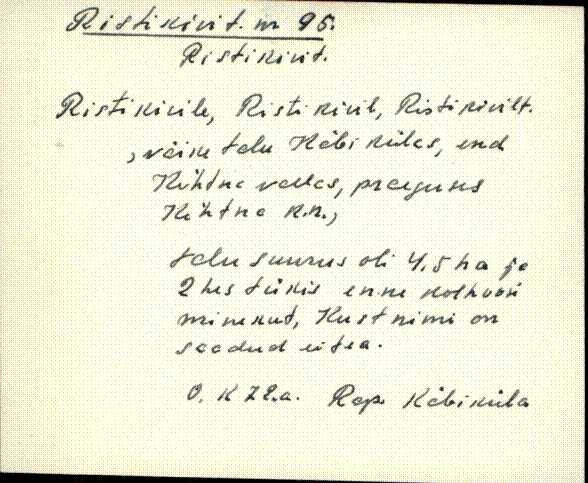 Ristikivit. nr 95.
Ristikivit.
Ristikivile, Ristikivil, Ristikivilt.
, väike talu Käbikülas, end
Kehtna vallas, praeguses
Kehtna k.n.,
talu suurus oli 4,5 ha ja
2 hes tükis enne kolhoosi
minekut, Kust nimi on
saadud ei tea.
O. K 72.a. Rap. Käbiküla